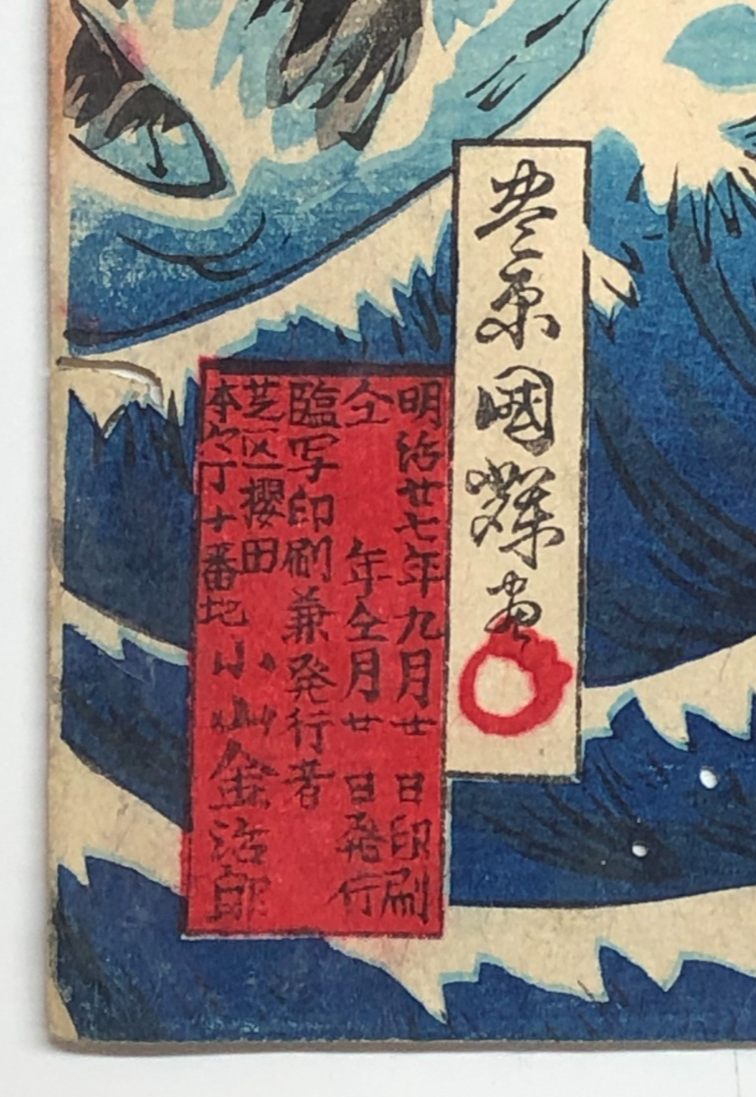 豊原國蝶画
明治廿七年九月廿 日印刷
仝 年仝月廿 日発行
臨写印刷兼発行者
芝区櫻田
本久丁十番地
小山金治郎